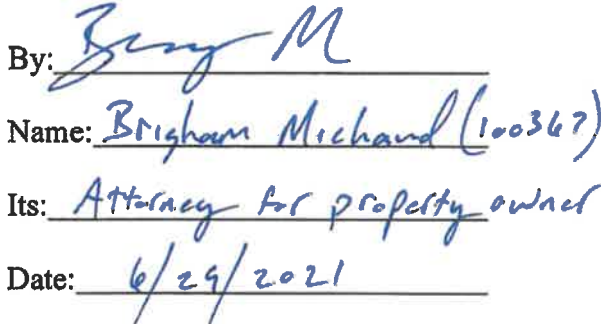 By:
Name: Brigham Michaud (100367)
Its: Attorney for property owner
Date: 6/29/2021